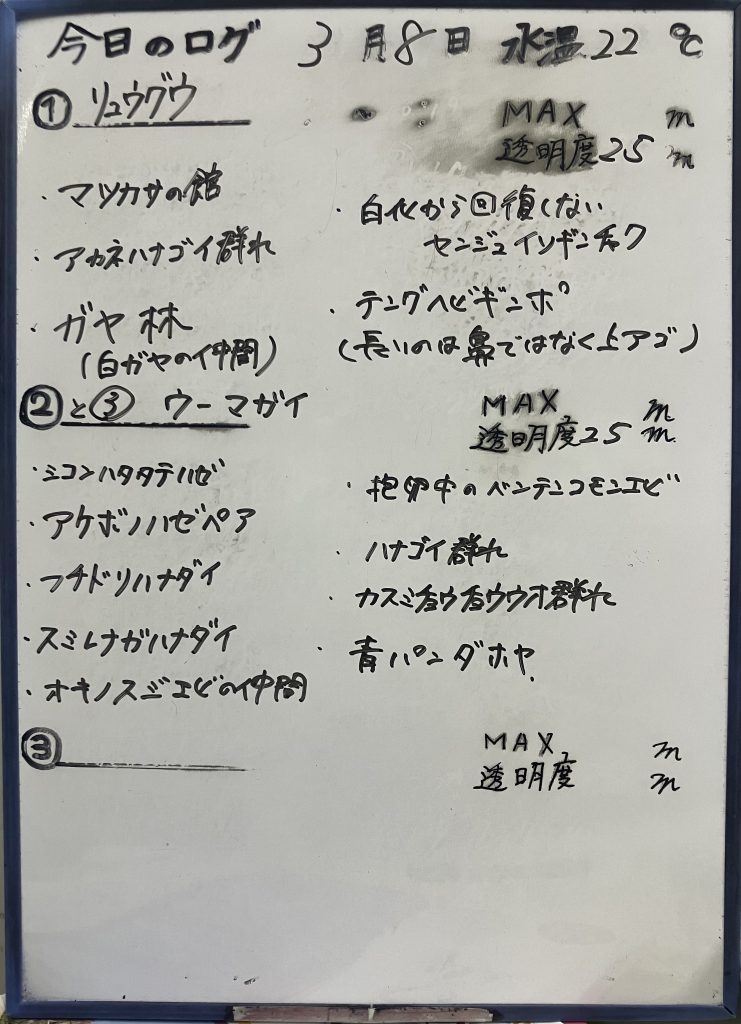 今日のログ 3月8日 水温22℃
① リュウグウ
MAX m
透明度25m
・マツカサの館
・アカネハナゴイ群れ
・ガヤ林
(白ガヤの仲間)
・白化から回復しない
センジュイソギンチャク
・テングヘビギンポ
(長いのは鼻ではなく上アゴ)
②と③ ウーマガイ
MAX m
透明度25m
・シコンハタタテハゼ
・アケボノハゼペア
・フチドリハナダイ
・スミレナガハナダイ
・オキノスジエビの仲間
・抱卵中のベンテンコモンエビ
・ハナゴイ群れ
・カスミチョウチョウウオ群れ
・青パンダホヤ
③
MAX m
透明度 m